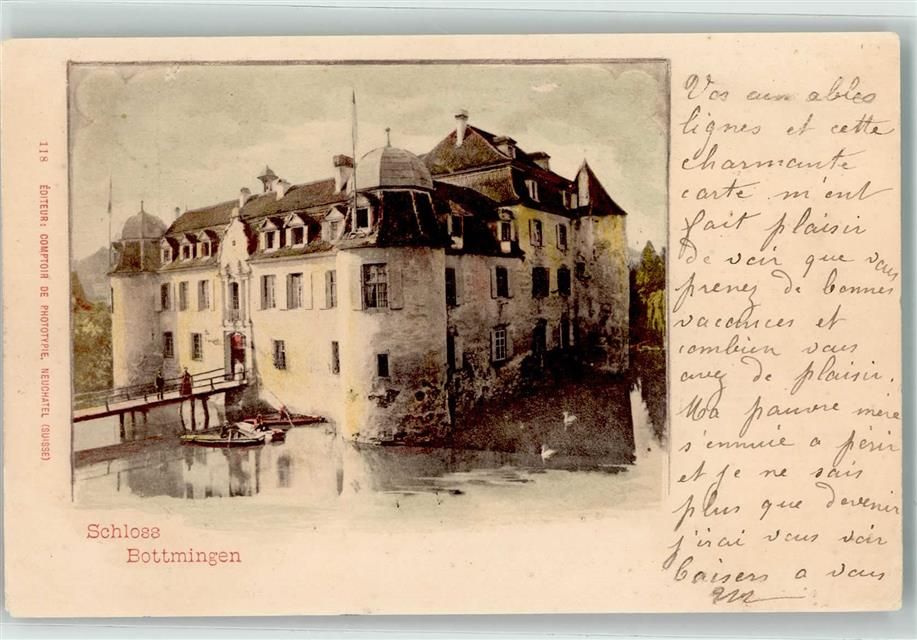 118 ÉDITEUR: COMPTOIR DE PHOTOTYPIE, NEUCHATEL (SUISSE)
Schloss
Bottmingen
Vos aimables
lignes et cette
charmante
carte m'ont
fait plaisir
de voir que vous
prenez de bonnes
vacances et
combien vous
avez de plaisir.
Ma pauvre mère
s'ennuie a périr
et je ne sais
plus que devenir
j'irai vous voir
baisers a vous